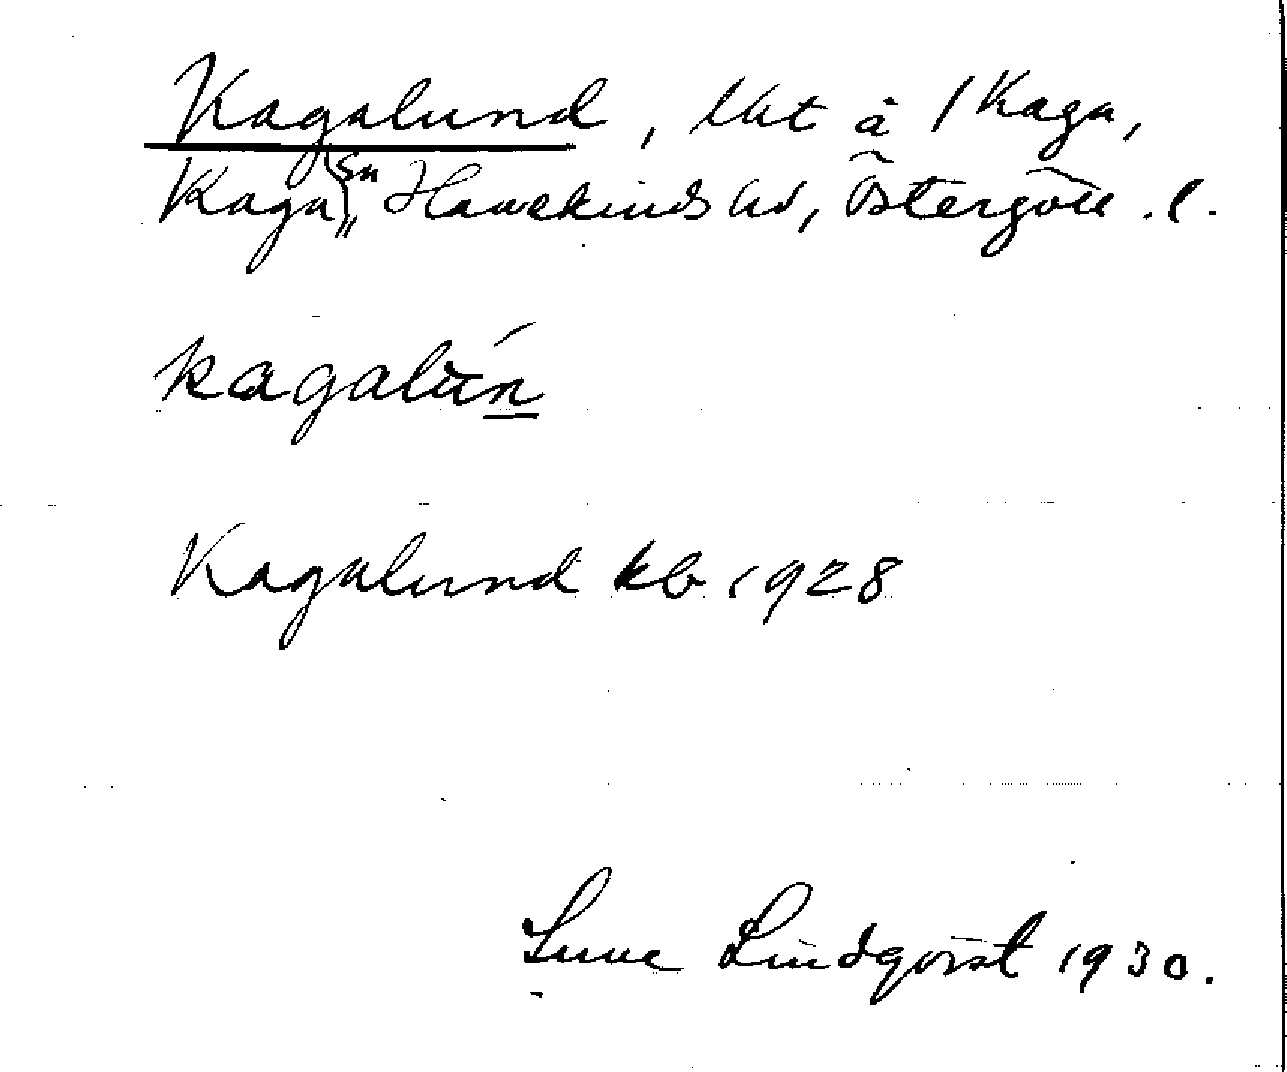 Kagalund, lht å 1 Kaga,
Kaga sn, Hanekinds hd, Östergötl. l.
kagalún
Kagalund kb 1928
Sune Lindqvist 1930.